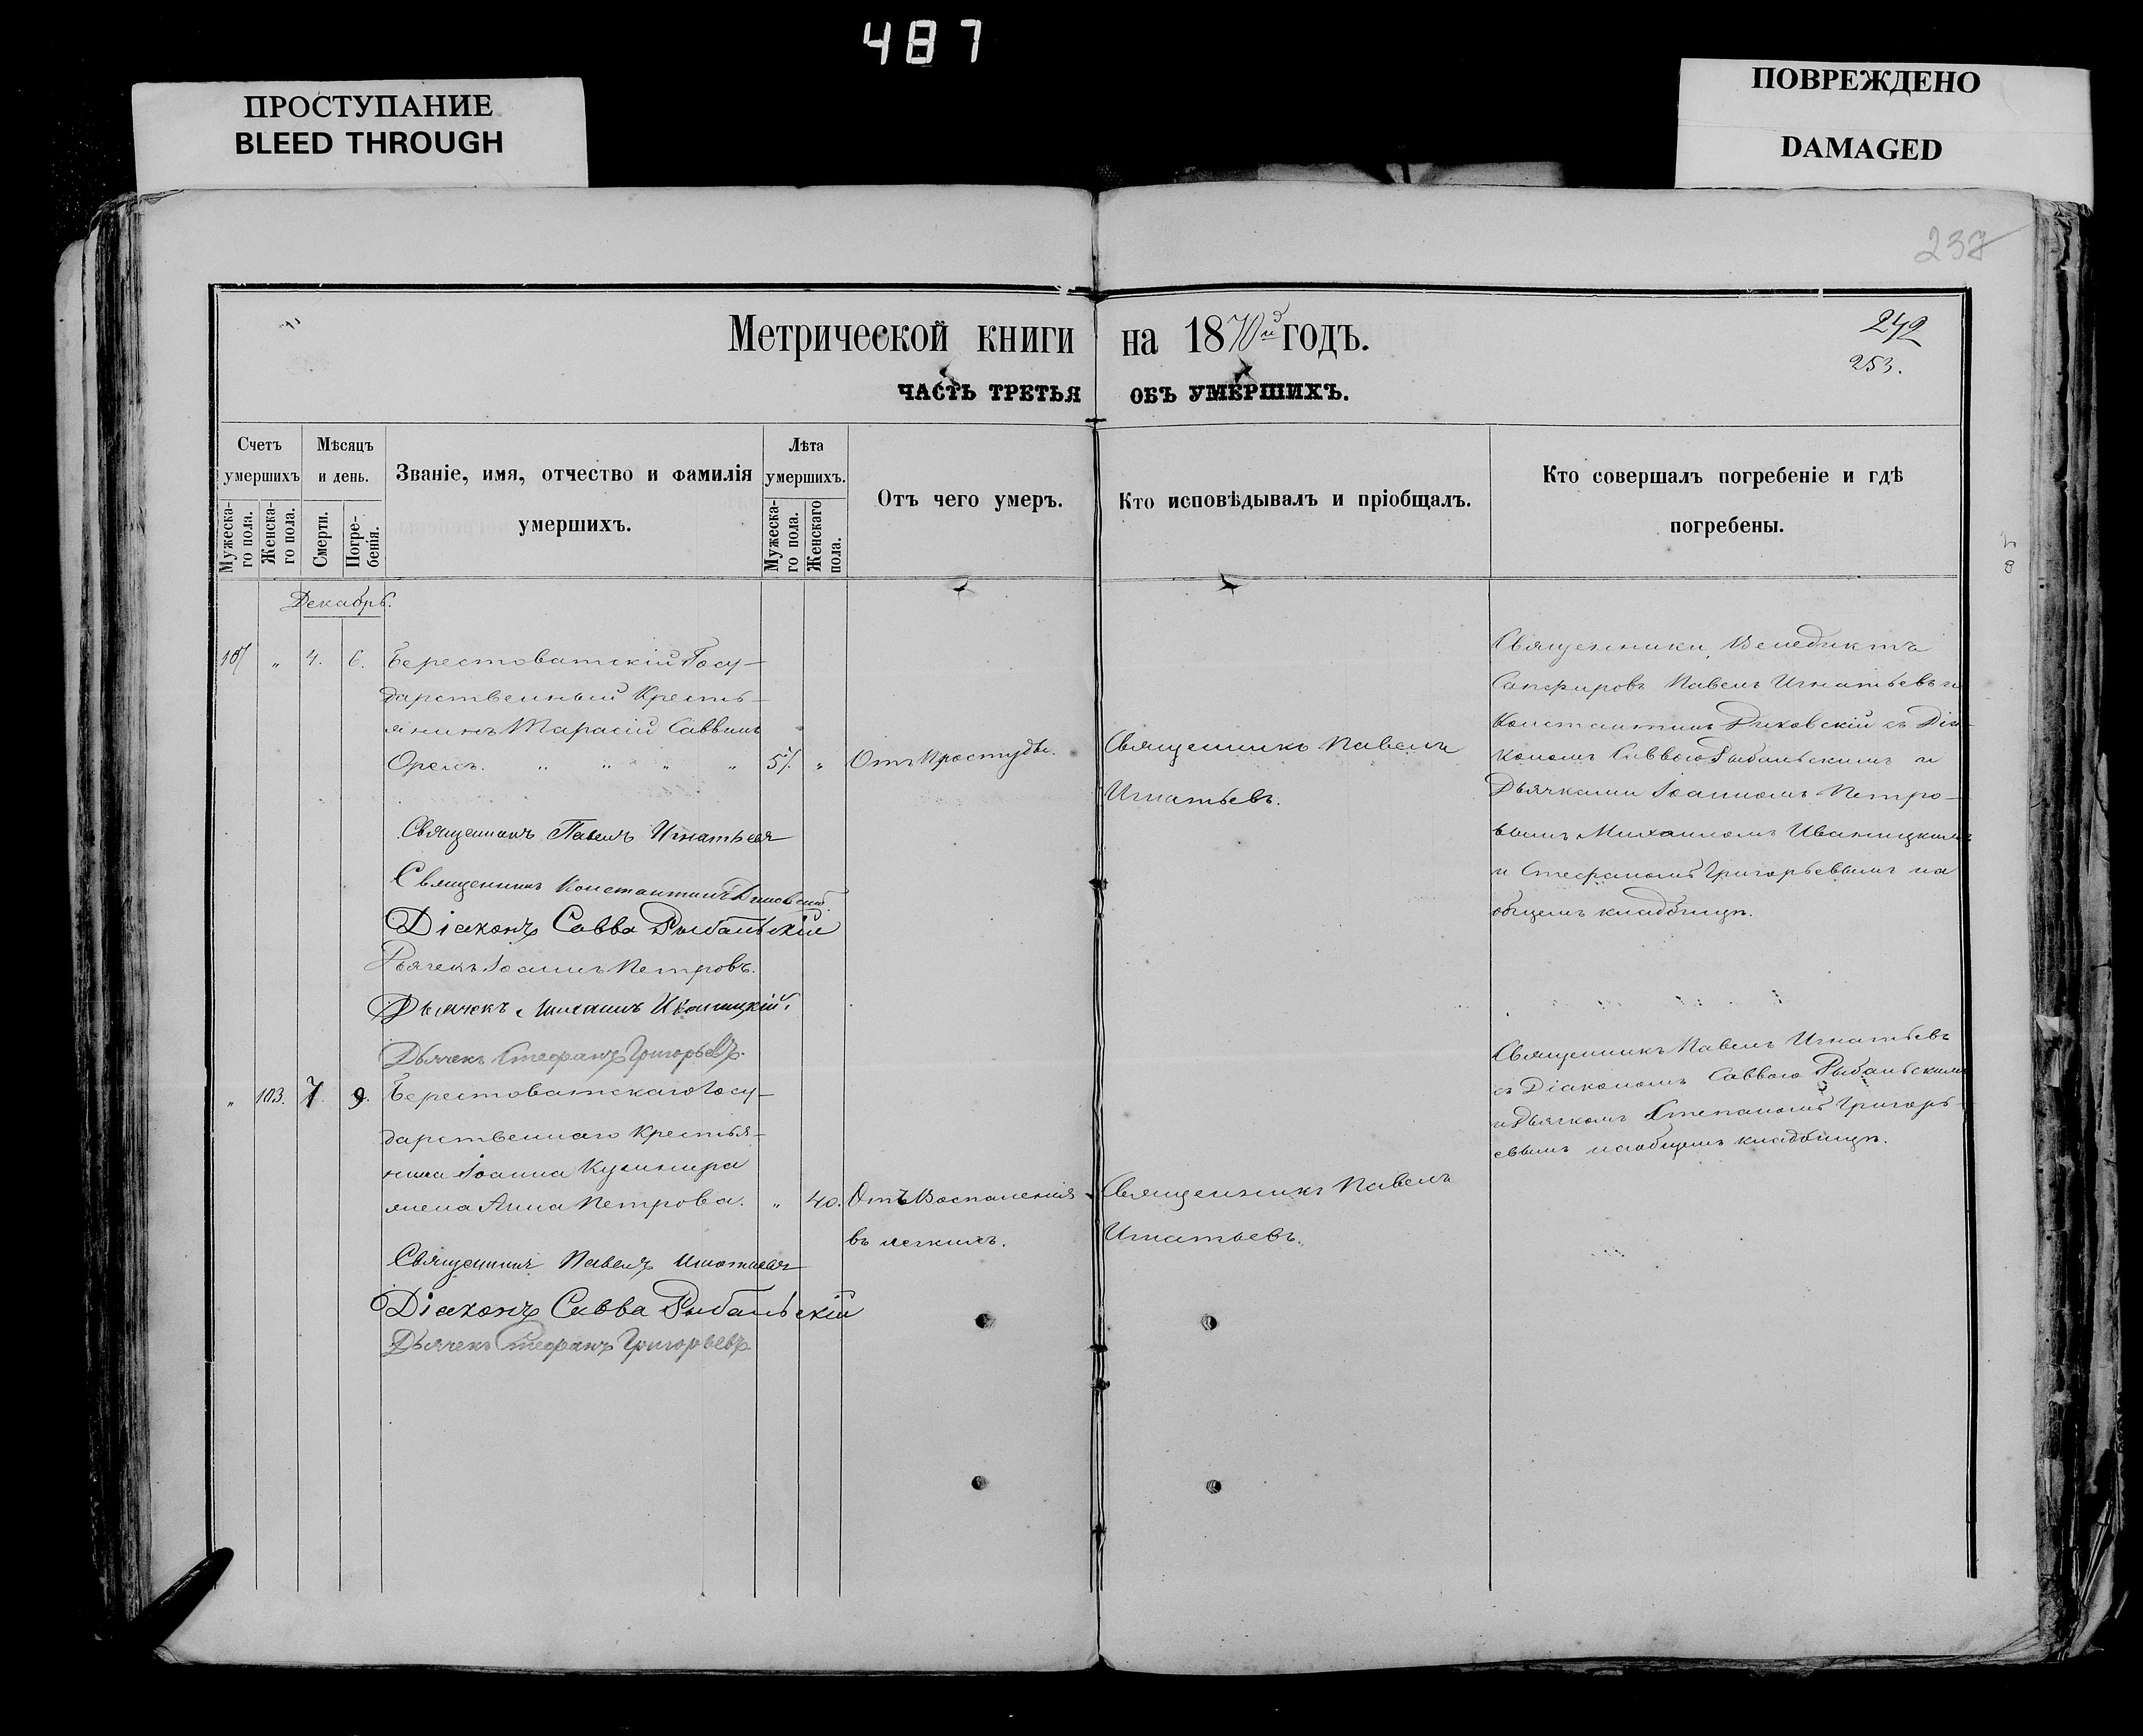 487
ПРОСТУПАНИЕ
BLEED THROUGH
ПОВРЕЖДЕНО
DAMAGED
237
Метрической книги на 1870й годъ.
242
253.
ЧАСТЬ ТРЕТЬЯ ОБЪ УМЕРШИХЪ.
Счетъ умершихъ
Мужеска-го пола.
Женска-го пола.
Мѣсяцъ и день.
Смерти.
Погре-бенія.
Званіе, имя, отчество и фамилія
умершихъ.
Лѣта умершихъ.
Мужеска-го пола.
Женскаго пола.
Отъ чего умеръ.
Кто исповѣдывалъ и пріобщалъ.
Кто совершалъ погребеніе и гдѣ
погребены.
Декабрь.
107 " 4. 6. Берестоватскій Госу-
дарственный Кресть-
янинъ Тарасій Саввинъ
Орелъ. " " " " 57. " Отъ Простуды.
Священникъ Павелъ
Игнатьевъ.
Священники, Венедиктъ
Сапфировъ Павелъ Игнатьевъ и
Константинъ Диковскій съ Діа-
кономъ Саввою Рыбальскимъ и
Дьячками Іоанномъ Петро-
вымъ Михаиломъ Иваницкимъ
и Стефаномъ Григорьевымъ на
общемъ кладбищѣ.
Священникъ Павелъ Игнатьевъ
Священникъ Константинъ Диковскій.
Діаконъ Савва Рыбальскій
Дьячекъ Іоаннъ Петровъ.
Дьячекъ Михаилъ Иваницкій.
Дьячекъ Стефанъ Григорьевъ.
" 103. 7. 9. Берестоватскаго Госу-
дарственнаго Крестья-
нина Іоанна Кушнира
жена Анна Петрова. " 40. Отъ Воспаленія
въ легкихъ.
Священникъ Павелъ
Игнатьевъ.
Священникъ Павелъ Игнатьевъ
съ Діакономъ Саввою Рыбальскимъ
и Дьячкомъ Степаномъ Григорь-
евымъ на общемъ кладбищѣ.
Священникъ Павелъ Игнатьевъ
Діаконъ Савва Рыбальскій
Дьячекъ Стефанъ Григорьевъ